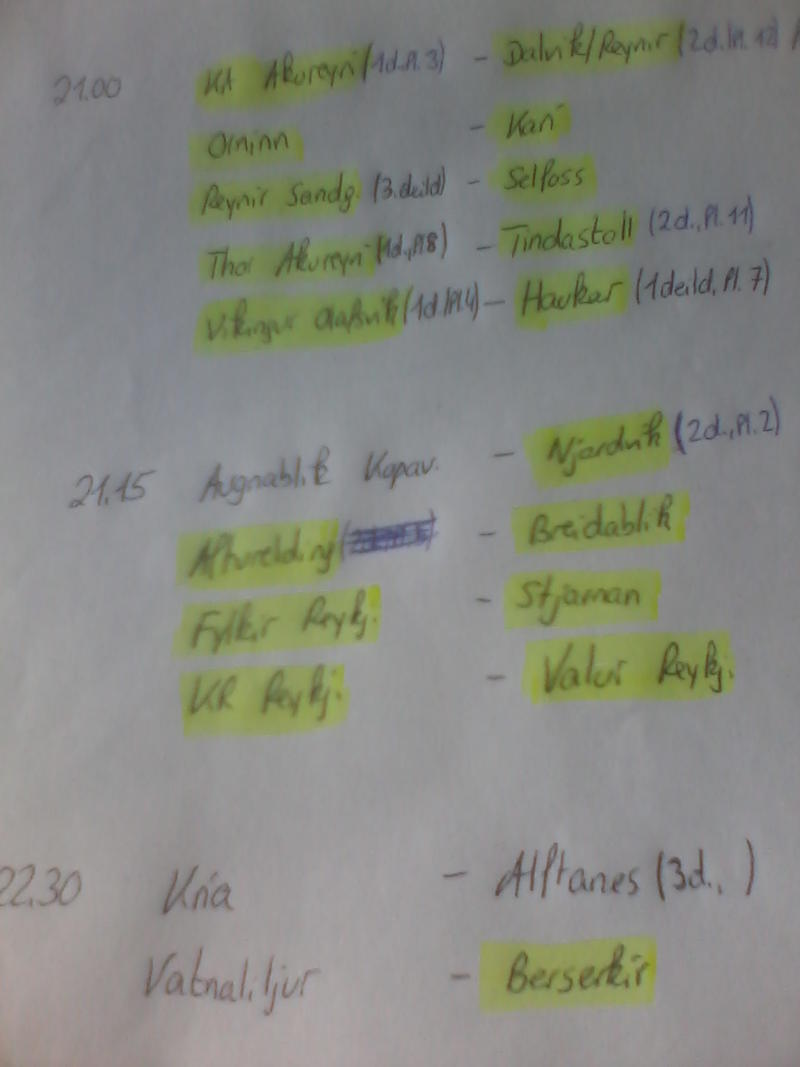 21.00 KA Akureyri (1d.Pl.3) - Dalvik/Reynir (2d.Pl.12)
Orninn - Kari
Reynir Sandg. (3.deild) - Selfoss
Thor Akureyri (1d.,Pl.8) - Tindastoll (2d.,Pl.11)
Vikingur Olafsvik (1d.Pl.4) - Haukar (1deild, Pl.7)
21.15 Augnablik Kopav. - Njardvik (2d.,Pl.2)
Afturelding - Breidablik
Fylkir Reykj. - Stjarnan
KR Reykj. - Valur Reykj.
22.30 Kria - Alftanes (3d., )
Vatnaliljur - Berserkir